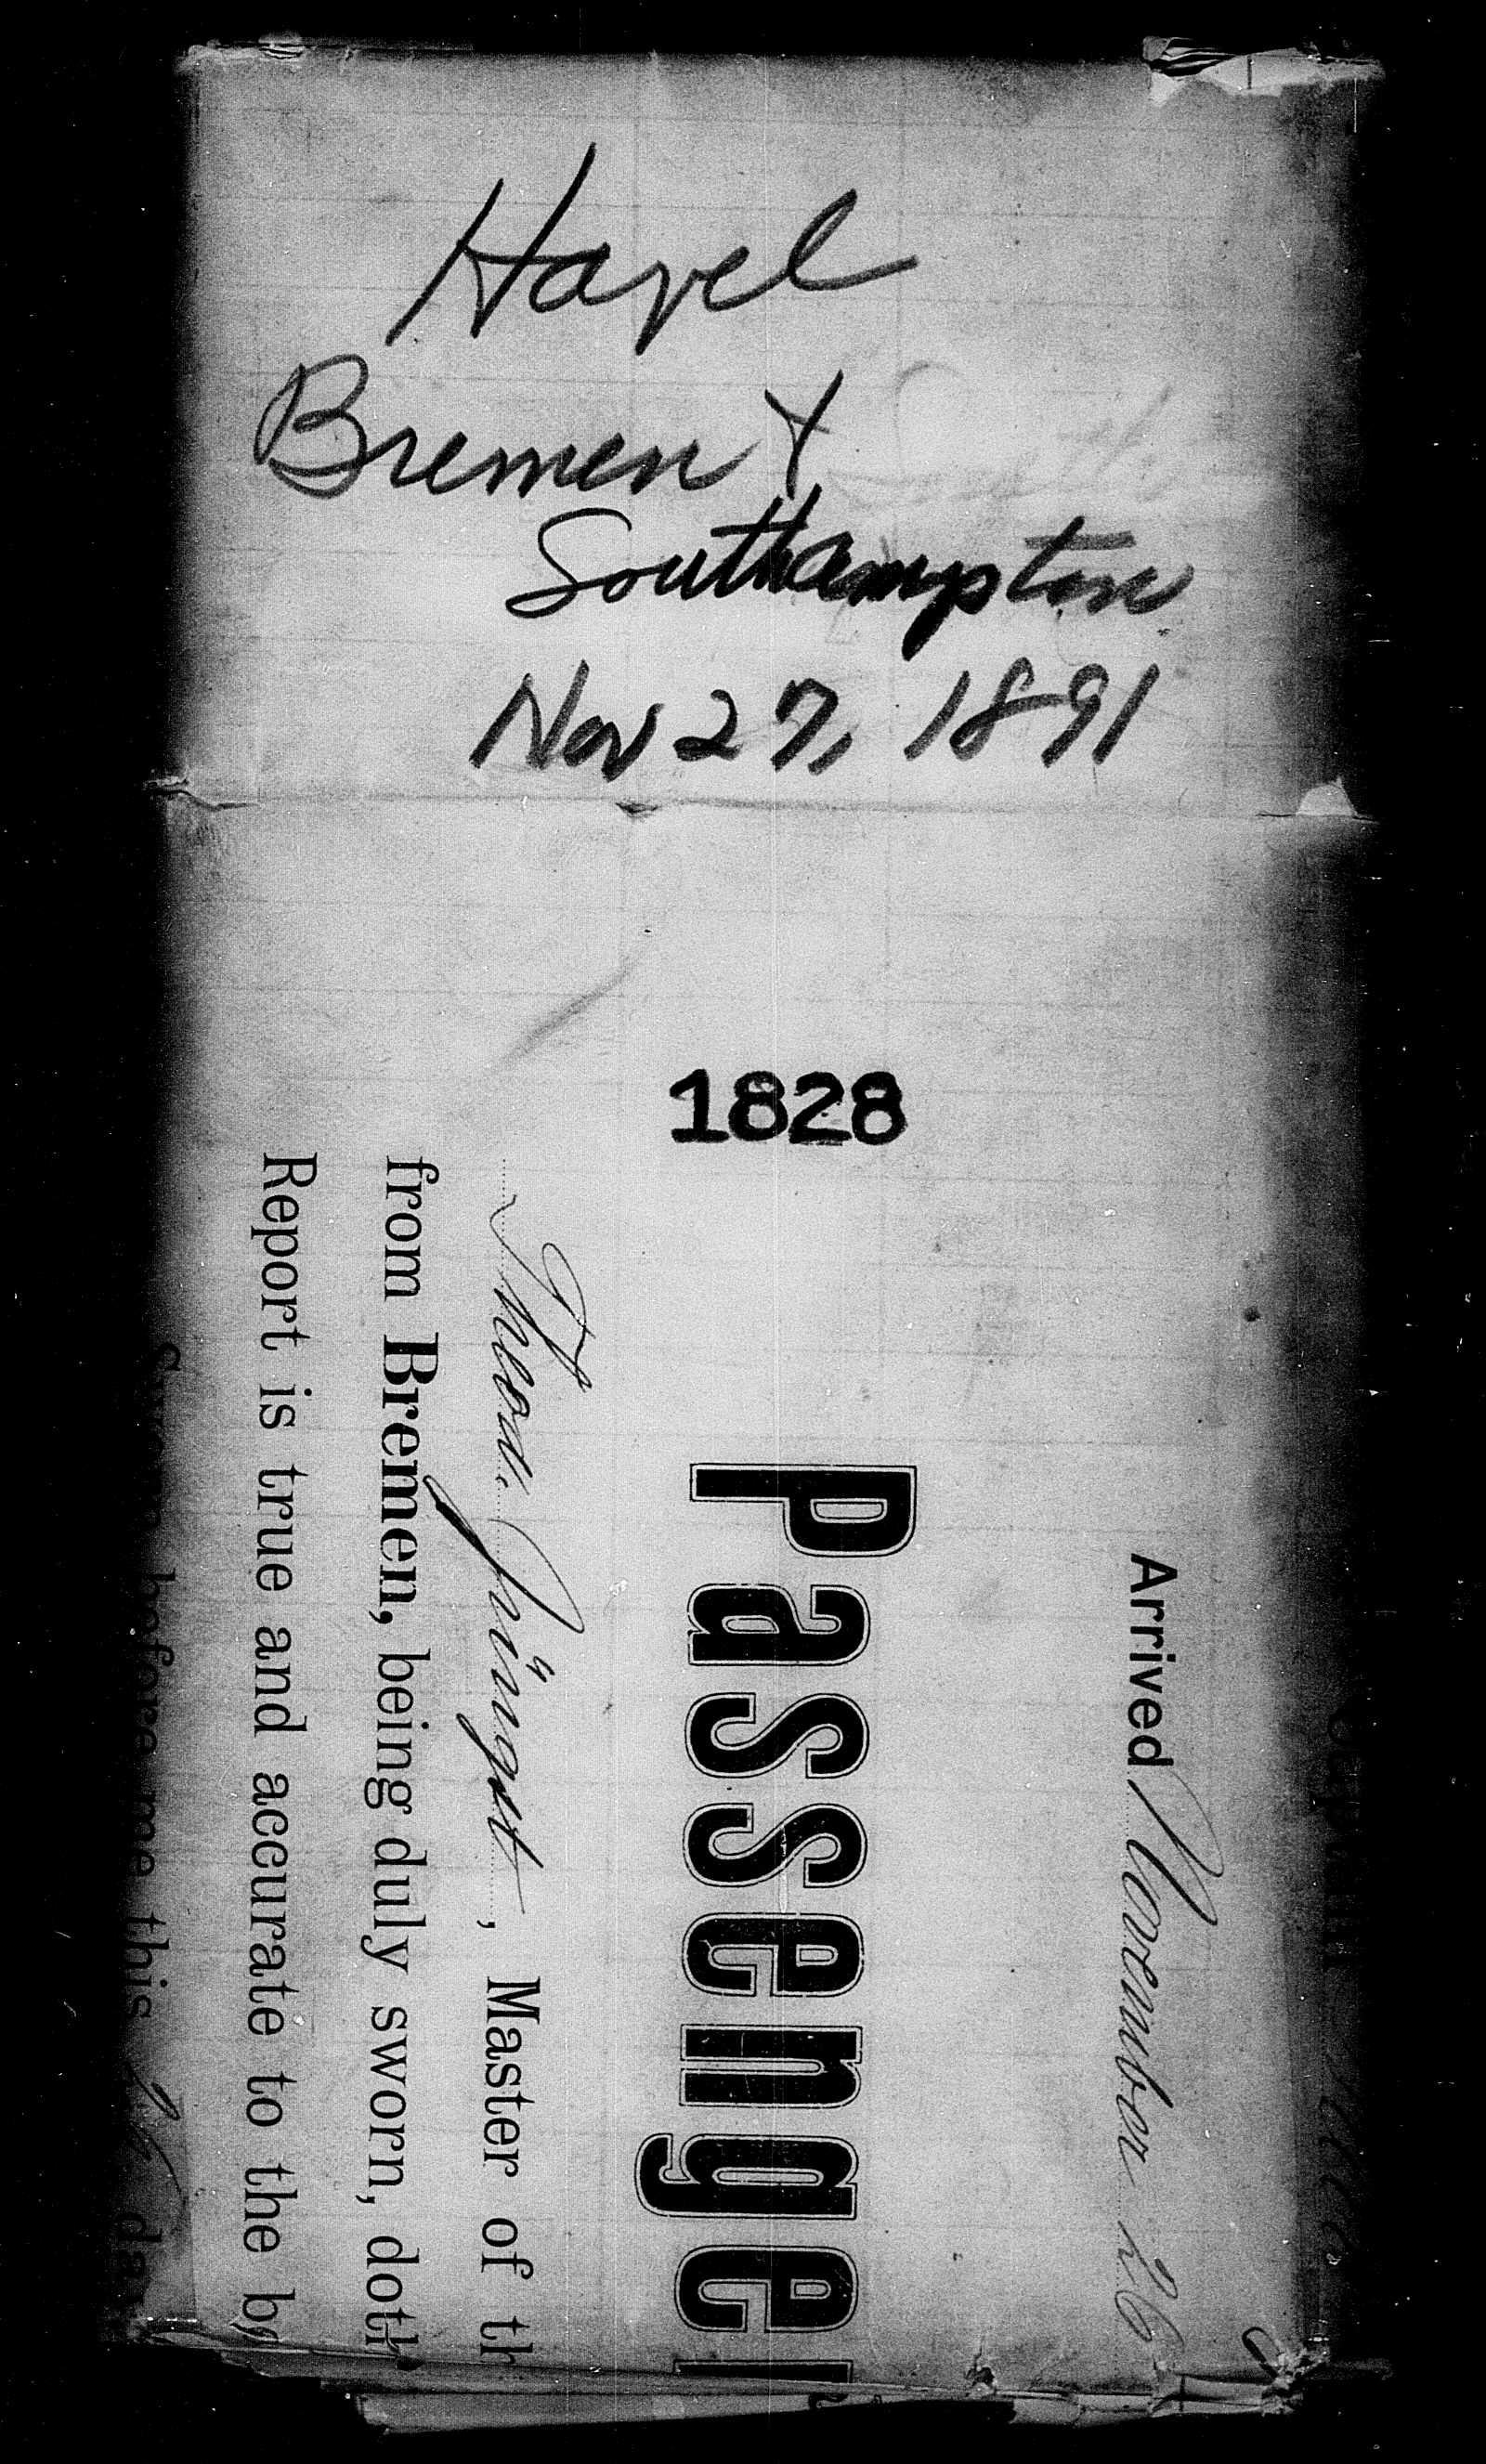 Havel
Bremen &
Southampton
Nov 27, 1891
1828
Arrived November 26
Passenger
Theod. Jüngst, Master of th
from Bremen, being duly sworn, doth
Report is true and accurate to the b
before me this